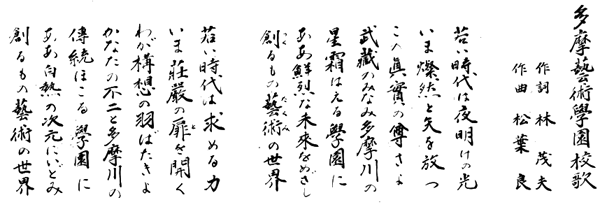 多摩藝術學園校歌
作詞 林 茂夫
作曲 松葉 良
若い時代は夜明けの光
いま燦然と矢を放つ
この眞實の尊さよ
武蔵のみなみ多摩川の
星霜はえる學園に
ああ鮮烈な未來をめざし
創るもの藝術の世界
たくみ
若い時代は求める力
いま荘厳の扉を開く
と
わが構想の羽ばたきよ
かなたの不二と多摩川の
傳統ほこる學園に
ああ白熱の次元にいどみ
創るもの藝術の世界